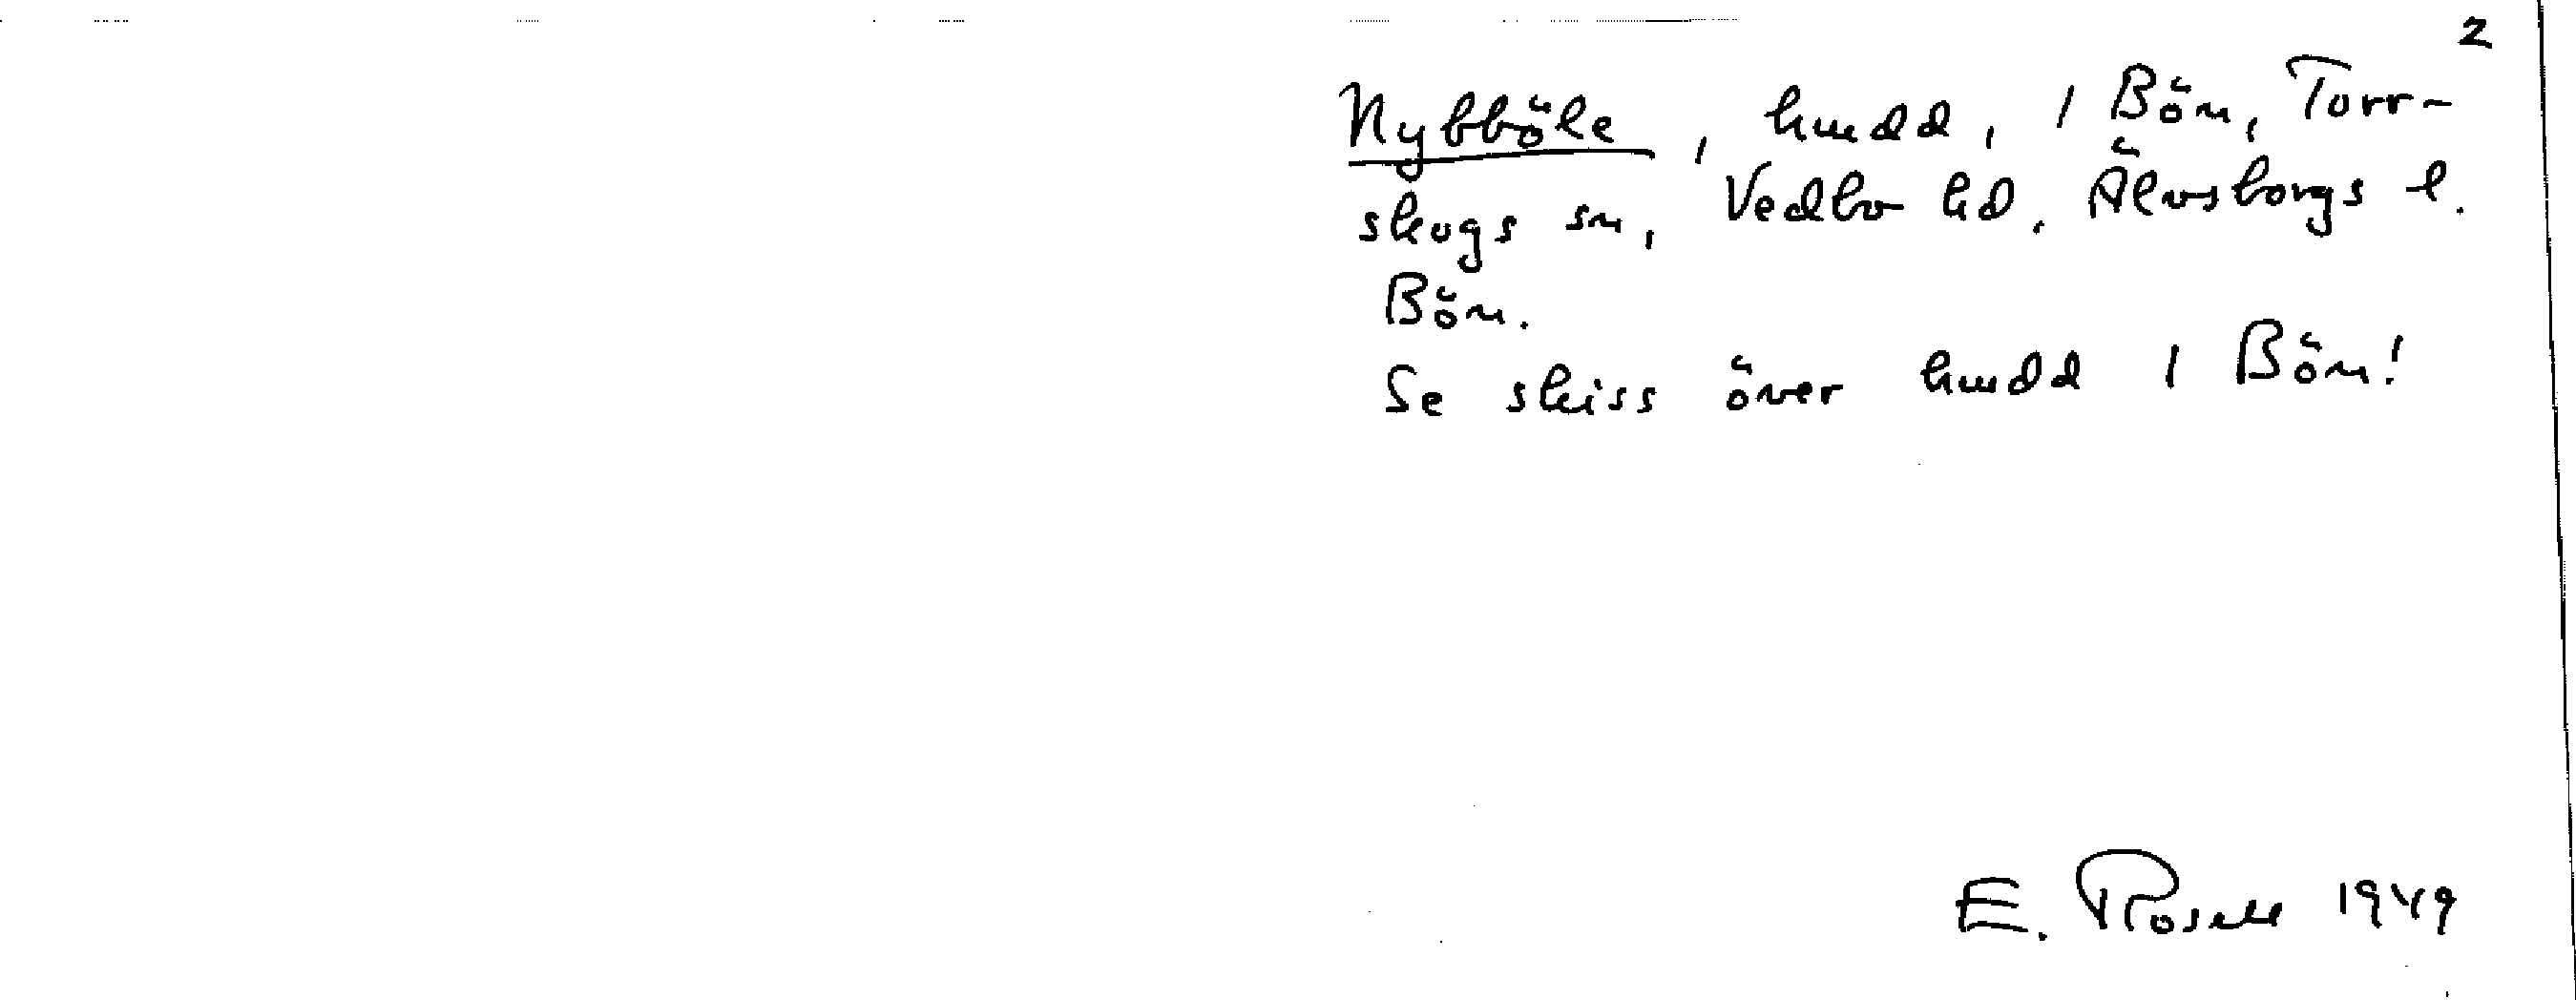 2
Nybböle, hmdd, 1 Bön, Torr-
skogs sn, Vedbo hd. Älvsborgs l.
Bön.
Se skiss över hmdd 1 Bön!
E. Rosell 1949